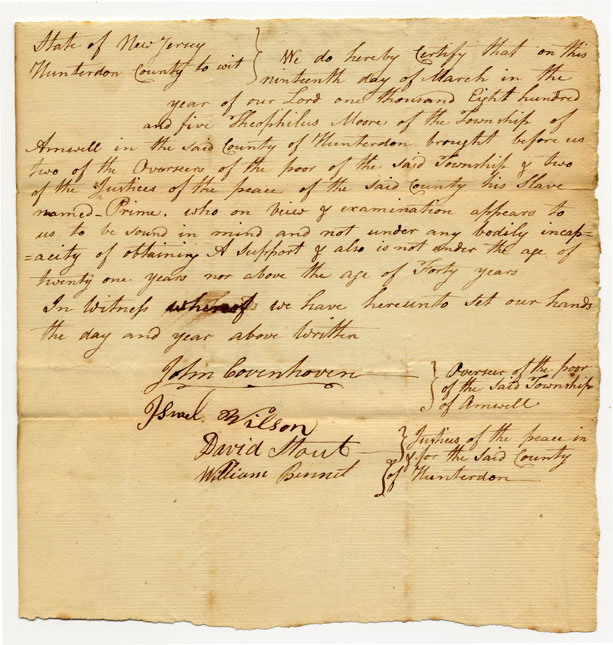 State of New Jersey
Hunterdon County to wit
We do hereby Certify that on this
nineteenth day of March in the
year of our Lord one thousand Eight hundred
and five Theophilus Moore of the Township of
Amwell in the Said County of Hunterdon brought before us
two of the Overseers of the poor of the Said Township & two
of the Justices of the peace of the Said County his Slave
named Prime. who on view & examination appears to
us to be sound in mind and not under any bodily incap=
=acity of obtaining A Support & also is not under the age of
twenty one years nor above the age of Forty years
In Witness whereof we have hereunto Set our hands
the day and year above Written
John Covenhoven
Israel Wilson
Overseer of the poor
of the Said Township
of Amwell
David Stout
William Bennet
Justices of the peace in
& for the Said County
of Hunterdon